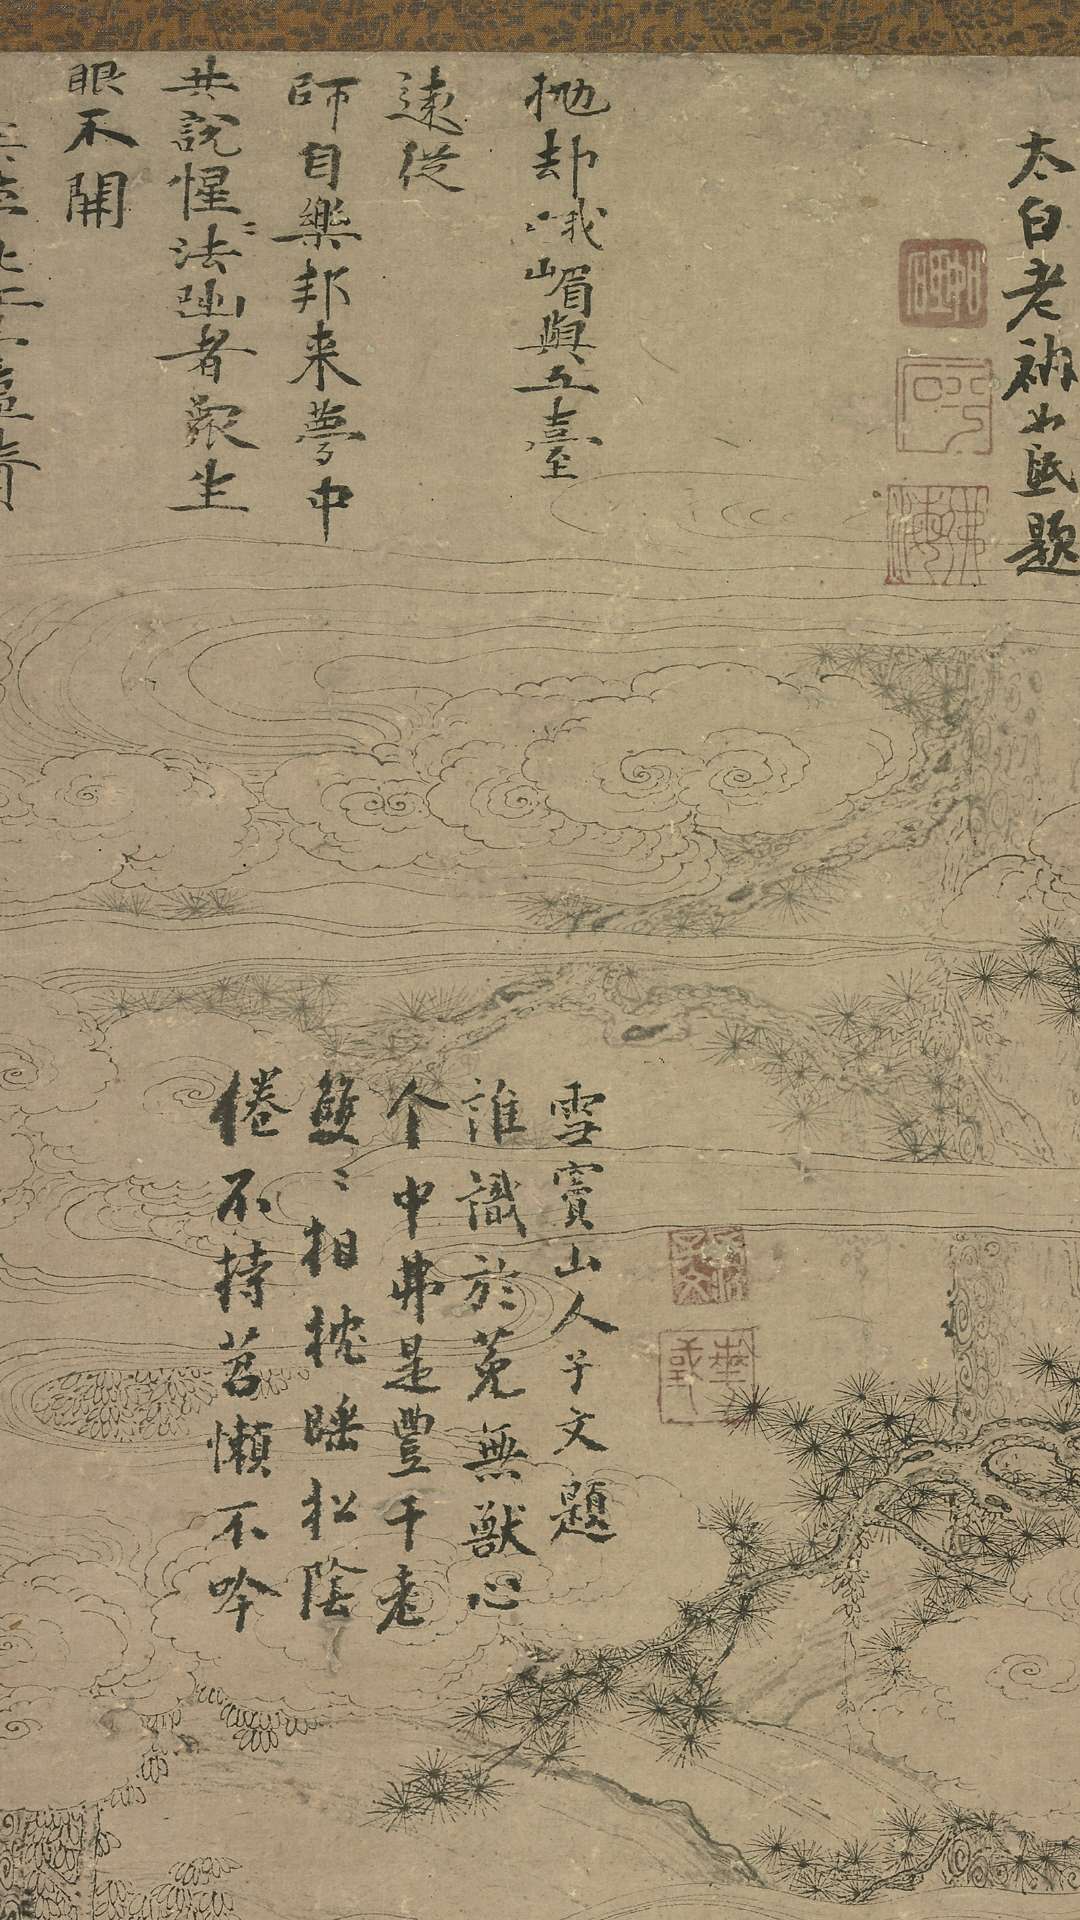 太白老衲如砥題
抛却峨嵋與五臺
遠從
師自樂邦來夢中
共說惺〻法者眾生
眼不開
倦不持苕懶不吟
雙〻相枕睡松陰
个中弗是豐干老
誰識於菟無獸心
雪竇山人子文題